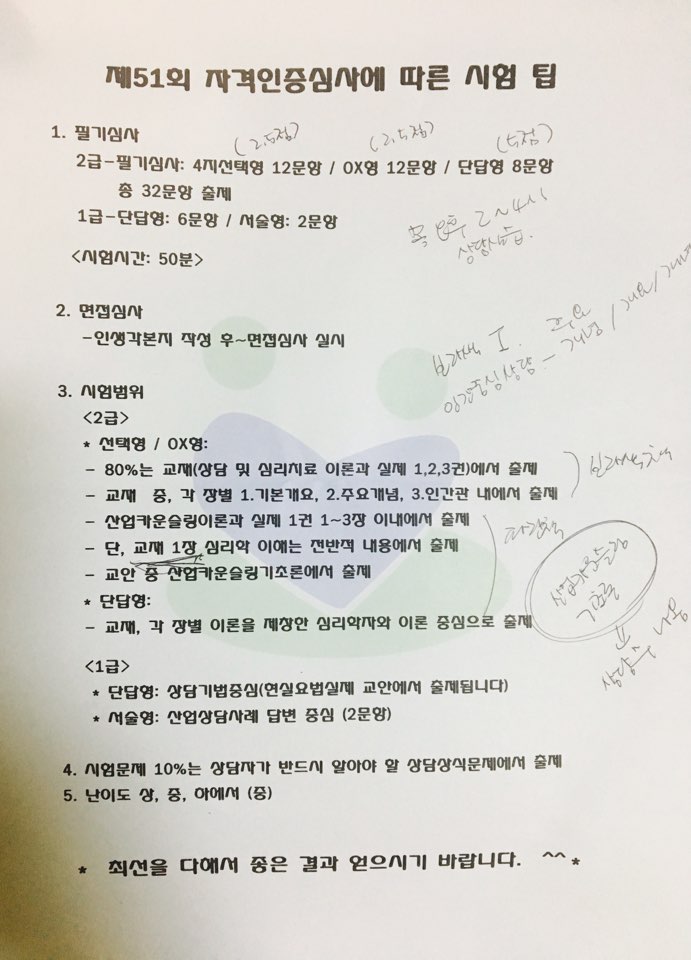 제51회 자격인증심사에 따른 시험 팁
1. 필기심사
(2.5점) (2.5점) (5점)
2급-필기심사: 4지선택형 12문항 / OX형 12문항 / 단답형 8문항
총 32문항 출제
1급-단답형: 6문항 / 서술형: 2문항
목 오후 2~4시
상담실습.
<시험시간: 50분>
2. 면접심사
-인생각본지 작성 후~면접심사 실시
보라색 I. 주요
인간중심상담 - 개념 / 개요 /
3. 시험범위
<2급>
* 선택형 / OX형:
- 80%는 교재(상담 및 심리치료 이론과 실제 1,2,3권)에서 출제
보라색책
- 교재 중, 각 장별 1.기본개요, 2.주요개념, 3.인간관 내에서 출제
- 산업카운슬링이론과 실제 1권 1~3장 이내에서 출제
파란책
- 단, 교재 1장 심리학 이해는 전반적 내용에서 출제
- 교안 중 산업카운슬링기초론에서 출제
산업카운슬링
기초론
* 단답형:
- 교재, 각 장별 이론을 제창한 심리학자와 이론 중심으로 출제
나옴
<1급>
* 단답형: 상담기법중심(현실요법실제 교안에서 출제됩니다)
* 서술형: 산업상담사례 답변 중심 (2문항)
4. 시험문제 10%는 상담자가 반드시 알아야 할 상담상식문제에서 출제
5. 난이도 상, 중, 하에서 (중)
* 최선을 다해서 좋은 결과 얻으시기 바랍니다. ^^ *